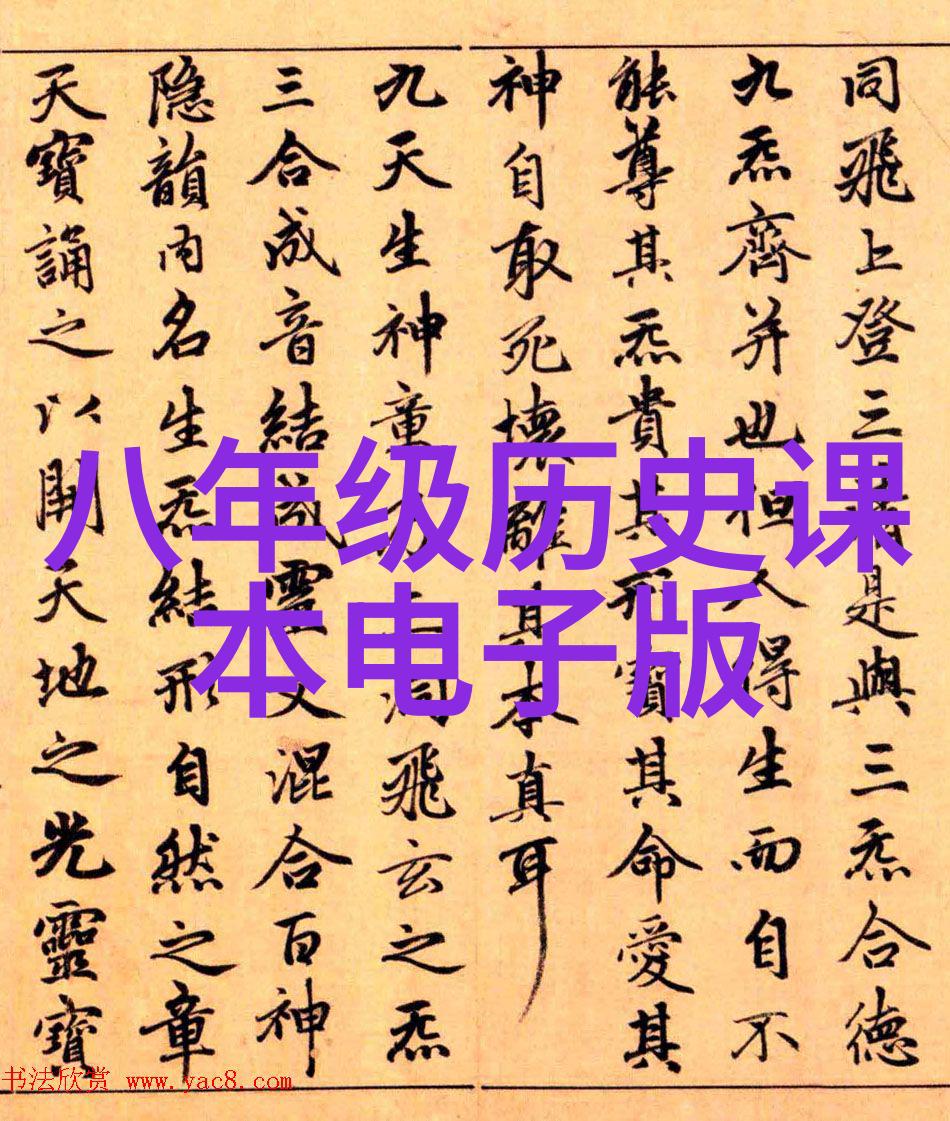 同飛上登三是與三炁合德
九炁齊并也但人得生而自不
能尊其炁貴其形寶其命愛其
神自取死壞離其本真耳
九天生神章乃三洞飛玄之炁
三合成音結成靈文混合百神
隐韻内名生炁結形自然之章
天寶誦之以開天地之光靈寶
八年级历史课
本电子版
书法欣赏 www.yac8.com